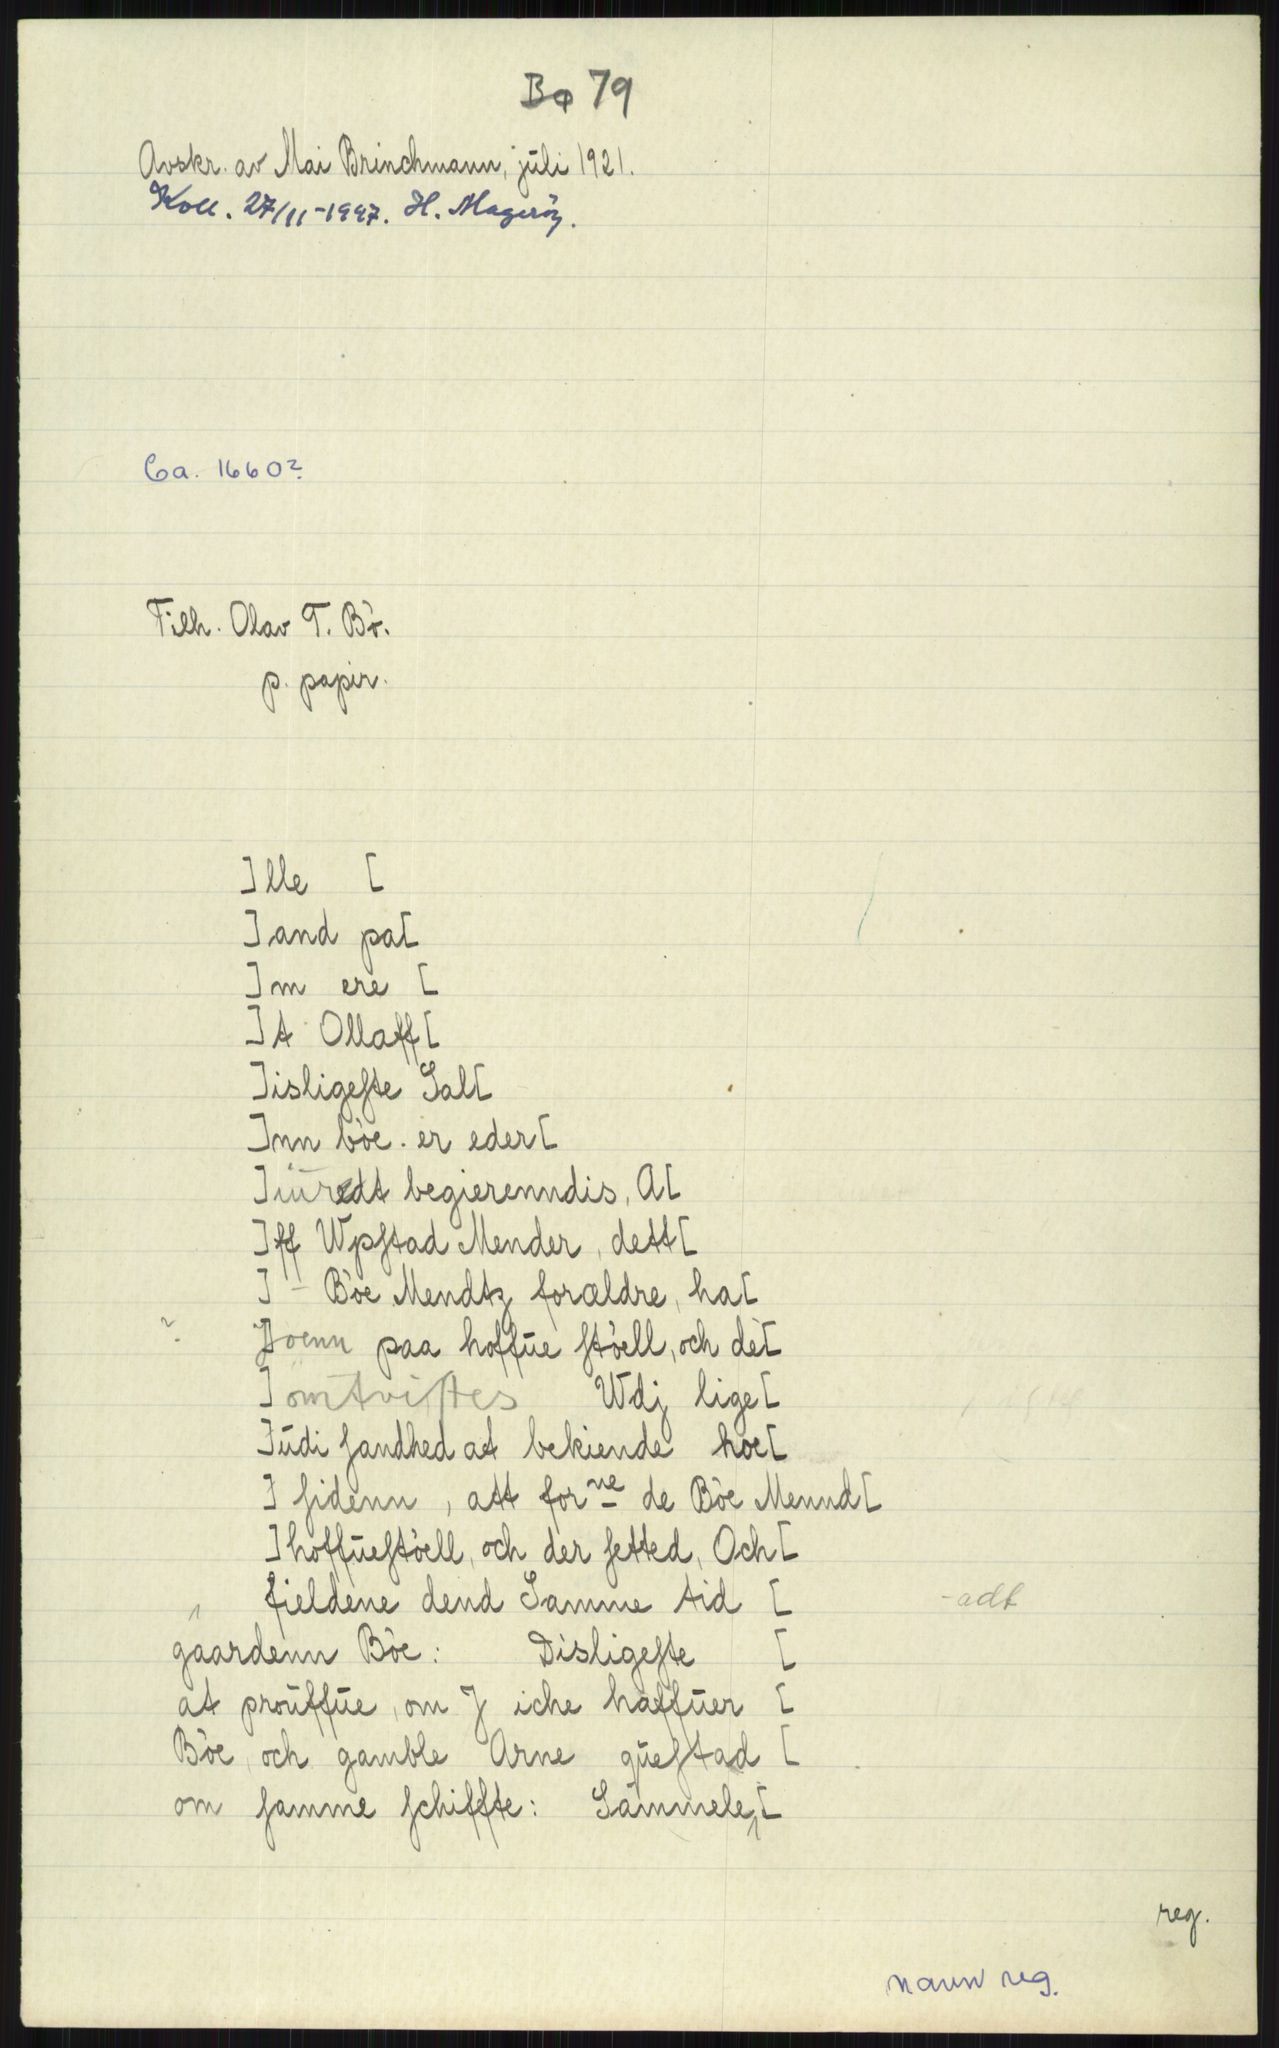 Bø 79
Avskr. av Mai Brinchmann, juli 1921.
Koll. 27/11-1947. H. Magerøy.
Ca. 1660?
Tilh. Olav T. Bø.
p. papir.
]lle [
]and pa[
]m ere [
]t Ollaff[
]isligeste Sal[
]nn bòe. er eder[
]uredt begierenndis, A[
]ff Wpstad Mender, dett[
] - Bòe Mendtz forældre, ha[
? ]oenn paa hoffũe stòell, och de[
] omtvistes Wdj lige[
]ũdi sandhed at bekiende hoe[
] sidenn, att forne de Bòe Mennd[
]hoffũestòell, och der setted, Och[
fieldene dend Samme tid [ -adt
gaardenn Bòe: Disligeste [
at prouffũe, om J iche haffũer [
Bòe, och gamble Arne qũestad [
om samme schiffte: Sammele[
reg.
navnreg.